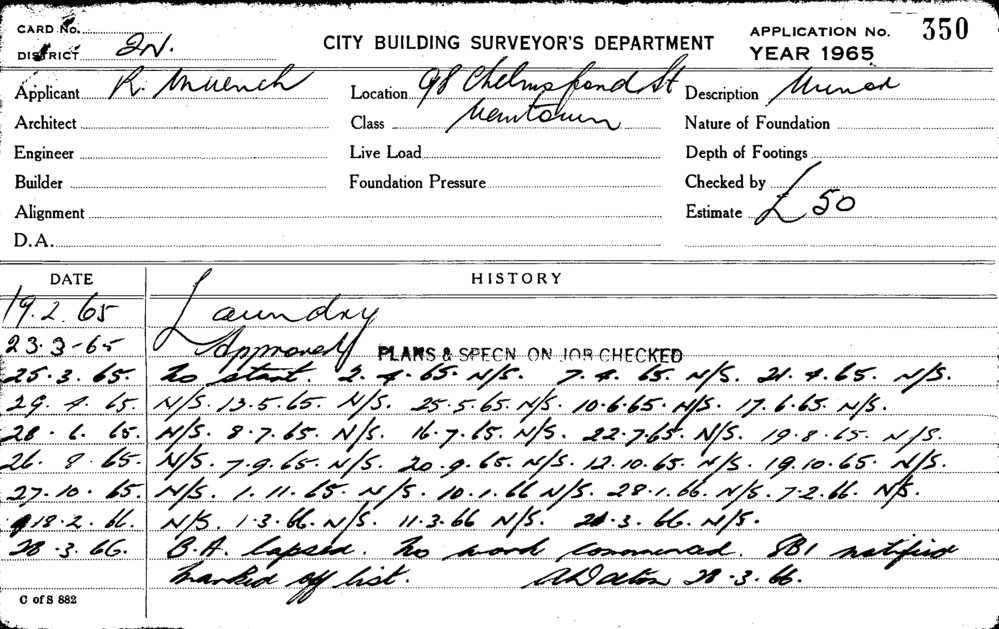 CARD No.
DISTRICT 2N.
CITY BUILDING SURVEYOR'S DEPARTMENT
APPLICATION No. 350
YEAR 1965
Applicant R. Muench Location 98 Chelmsford St Description Minor
Architect Class Newtown Nature of Foundation
Engineer Live Load Depth of Footings
Builder Foundation Pressure Checked by
Alignment Estimate £50
D.A.
DATE HISTORY
19.2.65 Laundry
23.3-65 Approved PLANS & SPECN ON JOB CHECKED
25.3.65. No start. 2.4.65 N/S. 7.4.65. N/S. 21.4.65. N/S.
29.4.65. N/S. 13.5.65. N/S. 25.5.65. N/S. 10.6.65. N/S. 17.6.65. N/S.
28.6.65. N/S. 8.7.65. N/S. 16.7.65. N/S. 22.7.65. N/S. 19.8.65. N/S.
26.8.65. N/S. 7.9.65. N/S. 20.9.65. N/S. 12.10.65. N/S. 19.10.65. N/S.
27.10.65. N/S. 1.11.65. N/S. 10.1.66 N/S. 28.1.66. N/S. 7.2.66. N/S.
18.2.66. N/S. 1.3.66. N/S. 11.3.66 N/S. 21.3.66. N/S.
28.3.66. B.A. lapsed. No work commenced. SBI notified
Marked off list. 28.3.66.
C of S 882